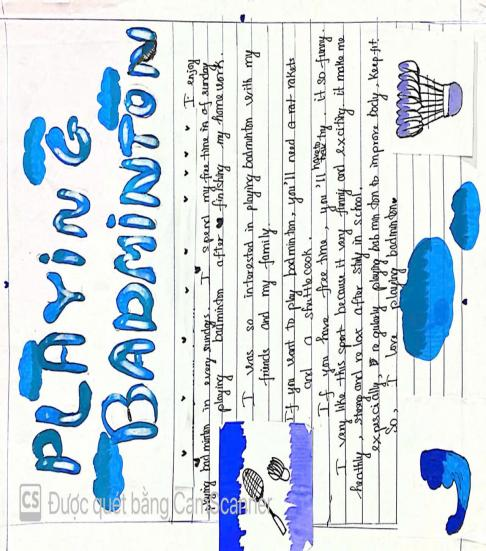 PLAYING
BADMINTON
I enjoy
playing badminton in every sundays. I spend my free time in of sunday
playing badminton after finishing my homework.
I was so interested in playing badminton with my
friends and my family.
If you want to play badminton, you'll need a rakets
and a shuttle cook.
If you have free time, you'll have to try. it so funny.
I very like this sport because it very funny and exciting it make me
healthly, strong and relax after stdy in school.
exuscially, regularly playing badminton to improve body. keep fit.
So, I love playing badminton
CS Được quét bằng CamScanner